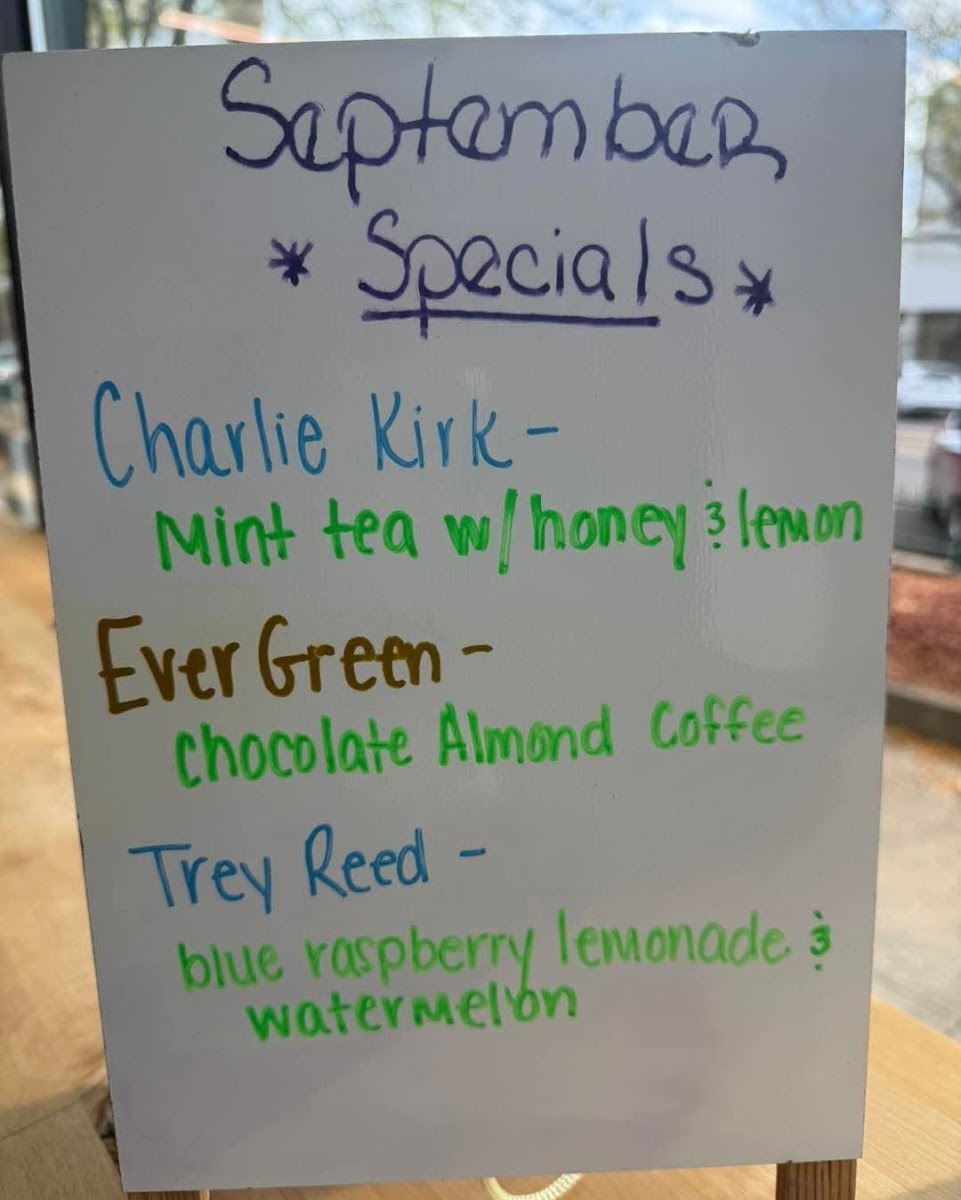 September
* Specials *
Charlie Kirk -
Mint tea w/ honey & lemon
EverGreen -
chocolate Almond Coffee
Trey Reed -
blue raspberry lemonade &
watermelon